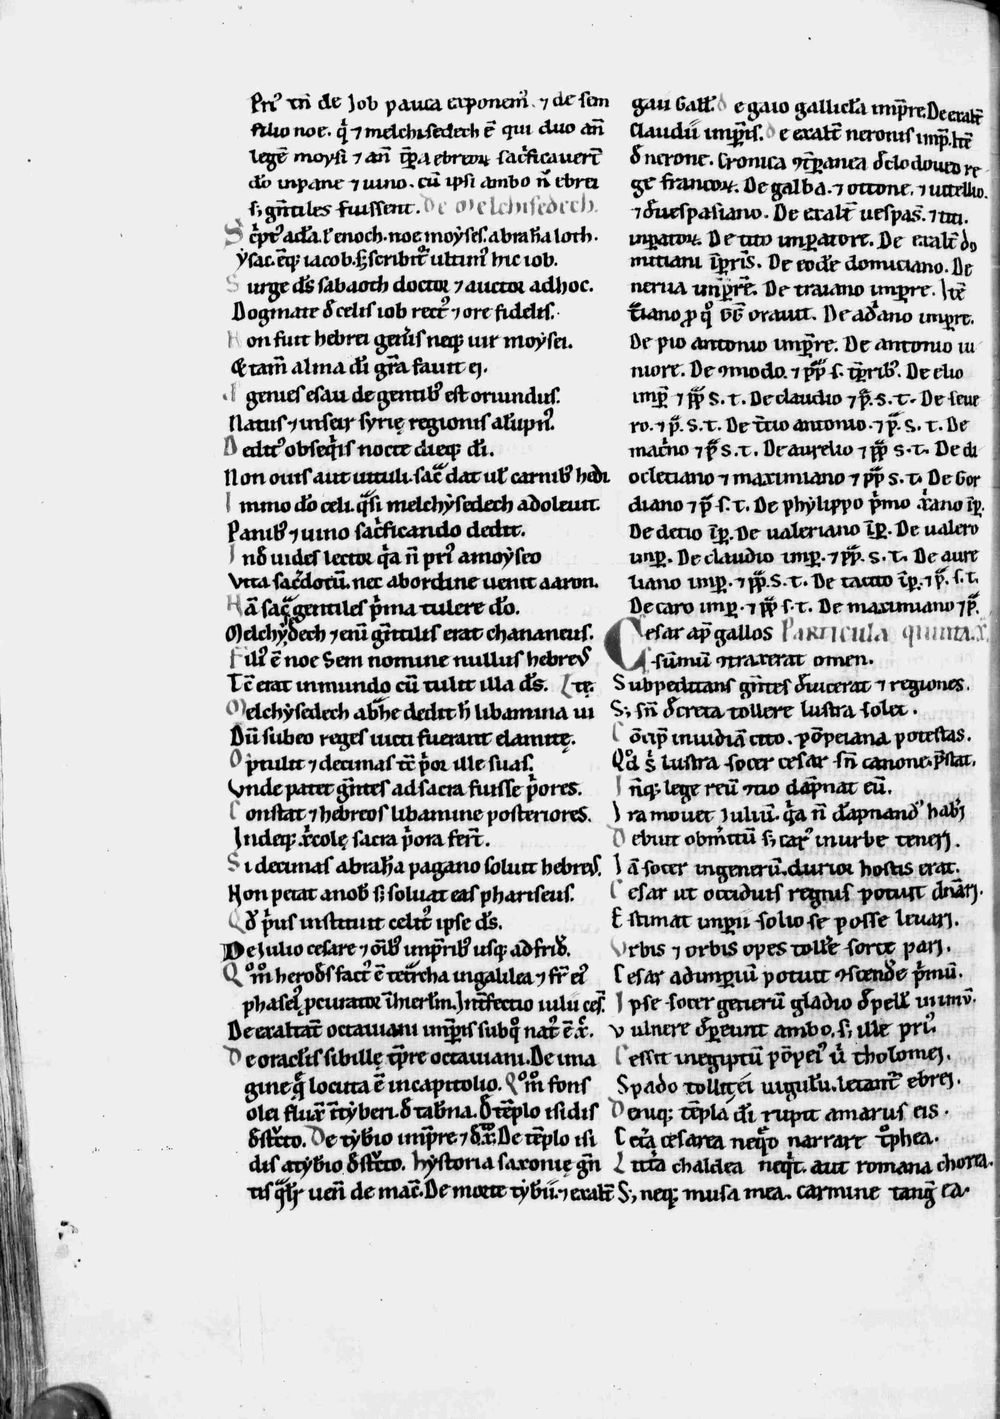 Pri᷒ tn̄ de Job pauca exponem᷒. ⁊ de sem
filio noe. q̇ ⁊ melchisedech ē qui duo an̄
legē moysi ⁊ an̄ t̄pa ebreoꝝ sac̓ficauer̄t
d̄o inpane ⁊ uino. cū ipsi ambo n̄ ebrei
s; gn̄tiles fuissent. De Melchisedech.
Sc̓pt᷒ ada. ł enoch. noe moyses. abraħa loth.
ysac. eq; iacob. scribit᷒ ultim᷒ hic iob.
Surge d̄s sabaoth doctor ⁊ auctor adhoc.
Dogmate d̄ celis iob rect᷒ ⁊ ore fidelis.
Non fuit hebrei gen̓is neq; uir moysei.
Et tam̄ alma di gr̄a fauit ei.
Igenies esau de gentib᷒ est oriundus.
Natus ⁊ inseir syrię regionis alūpn᷒.
Dedit᷒ obseq̓is nocte dieq; di.
Non ouis aut uituli. sac̃ dat uł carnib᷒ hedi
Immo d̄o celi. q̓si melchysedech adoleuit.
Panib᷒ ⁊ uino sac̓ficando dedit.
Inō uides lector q̓a n̄ pri᷒ amoyseo
Vita sac̓dotū nec abordine uenit aaron.
Hā sac̃ gentiles p̓ma tulere d̄o.
Melchysedech ⁊ enī gn̄tilis erat chananeus.
Fili᷒ ē noe Sem nomine nullus hebre᷒
Tc̄ erat inmundo cū tulit illa d̄s. Itē.
Melchysedech abħe dedit ħ libamina ui
Dū subeo reges uicti fuerant elamitę.
Optulit ⁊ decimas tc̄ p̓or ille suas.
Vnde patet gn̄tes ad sacra fuisse p̓ores.
Constat ⁊ hebreos libamine posteriores.
Indeq; x̓colę sacra p̓ora fer̄t.
Si decimas abraħa pagano soluit hebre᷒.
Non petat anob̄ s; soluat eas phariseus.
Qd̄ p̓us instituit celit᷒ ipse d̄s.
De Julio cesare ⁊ oīb᷒ imp̄rib᷒ usq; ad frid̄.
Qᵒm̊ herod̄s fact᷒ ē tet̃rcha ingalilea ⁊ fr̄ ei᷒
phasel᷒ ꝓcurator īhierlīn. Int̄fectio iulii ces̄.
De exaltat̄ octauiani imp̄ris subq̊ nat᷒ ē x̄.
De oraclis sibillę tp̄re octauiani. De ima
gine q̄ locuta ē incapitolio. Qᵒm̊ fons
olei flux̄ t̄tyberi. d̄ tab̄na. d̄ tēplo isidis
d̄st̓cto. De tyb̓io imp̄re ⁊ d̄ x̄. De tēplo isi
dis atyb̓io d̄st̓cto. hystoria saxonię gn̄
tis q̓lr̓ uen̄ de mac̄. De morte tyb̓ii. ⁊ exalt̄
gaii Gall̄. De gaio gallicła imp̄re. De exalt̄
claudii imp̄is. De exalt̄ neronis imp̄. Itē
d̄ nerone. Cronica ꝯt̄panea d̄ clodoueo re
ge francoꝝ. De galba. ⁊ ottone. ⁊ uitellio.
⁊ d̄ uespasiano. De exalt̄ uespas̄. ⁊ titi.
inperatoꝝ. De tito imperatore. De exalt̄ do
mitiani īp̄ris. De eodē domiciano. De
nerua imp̄re. De traiano imp̄re. Itē
t̄iano ꝓ q̊ b̄b̄ orauit. De ad̓ano imp̄re.
De pio antonio imp̄re. De antonio iu
niore. De ꝯmodo. ⁊ p̄p̄ s. t̄prib᷒. De elio
imp̄ ⁊ p̄p̄ s. t. De claudio ⁊ p̄. s. t. De seue
ro. ⁊ p̄. s. t. De t̄cio antonio. ⁊ p̄. s. t. De
mac̓no ⁊ p̄ s. t. De aurelio ⁊ p̄p̄ s. t. De di
ocletiano ⁊ maximiano ⁊ p̄p̄ s. t. De Gor
diano ⁊ p̄ s. t. De phylippo p̓mo x̓ano īp̄.
De decio īp̄. De valeriano īp̄. De valero
inp̄. De claudio imp̄. ⁊ p̄p̄. s. t. De aure
liano imp̄. ⁊ p̄p̄. s. t. De tacito īp̄. ⁊ p̄. s. t.
De caro imp̄. ⁊ p̄p̄ s. t. De maximiano ⁊ p̄.
Cesar ap̄ gallos Particula quinta.x̄.
sūmū ꝯtraxerat omen.
Subpeditans gn̄tes d̄uicerat ⁊ regiones.
S; sn̄ d̄creta tollere lustra solet.
Cōcip̄ inuidiā cito. pōpeiana potestas.
Qd̄ s̄ lustra socer cesar sn̄ canone p̄stat.
Inq; lege reū ꝯuo dāpnat eū.
Ira mouet iuliū. q̓a n̄ dāpnand᷒ hab̓i
Debuit obm̓itū s; car᷒ inurbe teneri.
Iā socer ingenerū. durior hostis erat.
Cesar ut occiduis regnis potuit dn̄ari.
Estimat imperii solio se posse leuari.
Vrbis ⁊ orbis opes tollere sorte pari.
Cesar adimperiū potuit ꝯscendere p̓mū.
Ipse socer generū gladio d̄pell̄ inimū.
Vulnere d̄pereunt ambo. s; ille pri᷒
Cessit inegiptū pōpei᷒ ū̓ tholomei.
Spado tollit ei uigilū. letant᷒ ebrei.
Denuq; tēpla di rupit amarus eis.
Cetera cesarea nequeo narrare trophea.
Littera chaldea nequit. aut romana chorea.
S; neq; musa mea. carmine tanget ea.